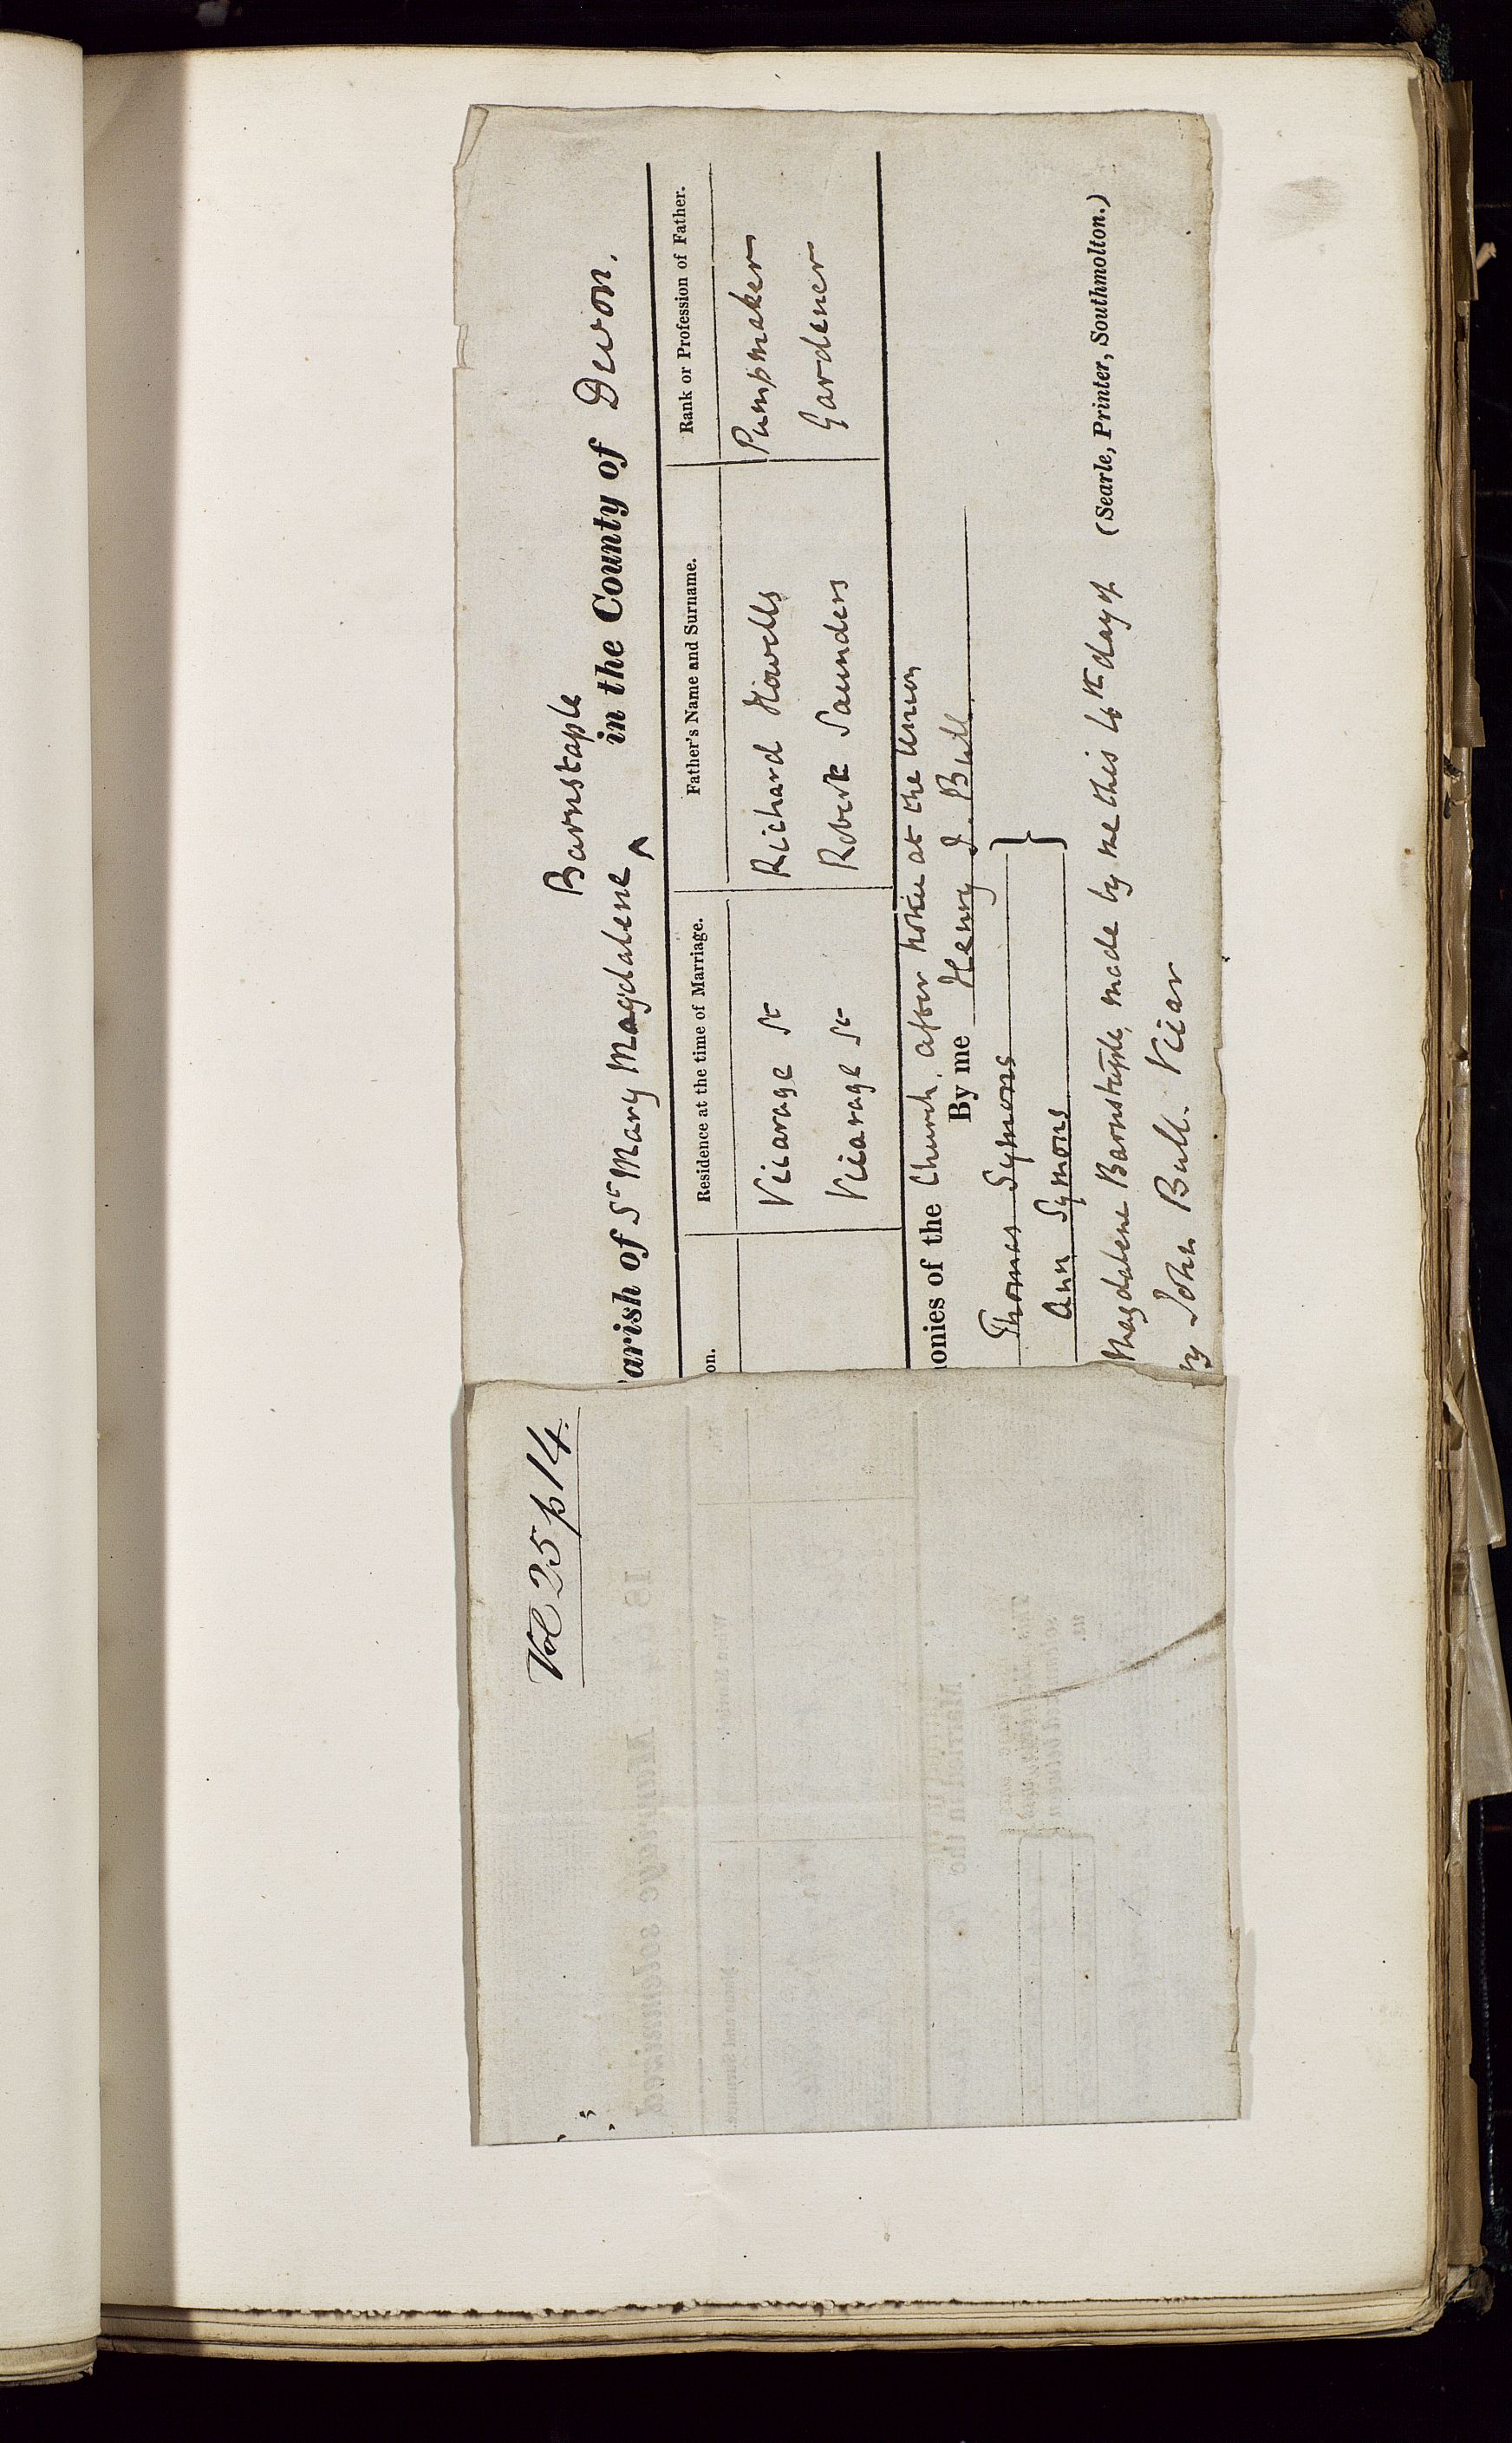 Vol 25 p 14.
Barnstaple
arish of St Mary Magdalene ^ in the County of Devon.
on. Residence at the time of Marriage. Father's Name and Surname. Rank or Profession of Father.
Vicarage St Richard Howells Pumpmaker
Vicarage St Robert Saunders Gardener
onies of the Church, after notice at the Union
By me Henry J. Bull
Thomas Symons
Ann Symons
Magdalene Barnstaple, made by me this day of
(Searle, Printer, Southmolton.)
by John Bull. Vicar